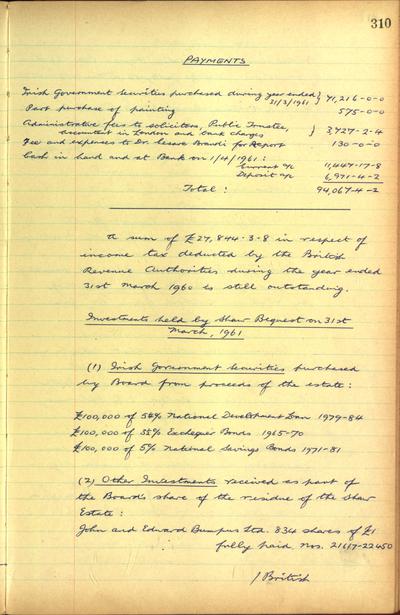 310
PAYMENTS
Irish Government Securities purchased during year ended 31/3/1961 } 71,216-0-0
Part purchase of painting 575-0-0
Administrative fees to solicitors, Public Trustee,
accountant in London and bank charges } 3,727-2-4
Fee and expenses to Dr. Cesare Brandi for Report 130-0-0
Cash in hand and at Bank on 1/4/1961:
Current a/c 11,447-17-8
Deposit a/c 6,971-4-2
Total: 94,067-4-2
A sum of £27,844-3-8 in respect of
income tax deducted by the British
Revenue Authorities during the year ended
31st March 1960 is still outstanding.
Investments held by Shaw Bequest on 31st
March, 1961
(1) Irish Government Securities purchased
by Board from proceeds of the estate:
£100,000 of National Development Loan 1979-84
£100,000 of Exchequer Bonds 1965-70
£100,000 of 5% National Savings Bonds 1971-81
(2) Other Investments received as part of
the Board's share of the residue of the Shaw
Estate:
John and Edward Bumpus Ltd. 834 shares of £1
fully paid Nos. 21617-22450
/British